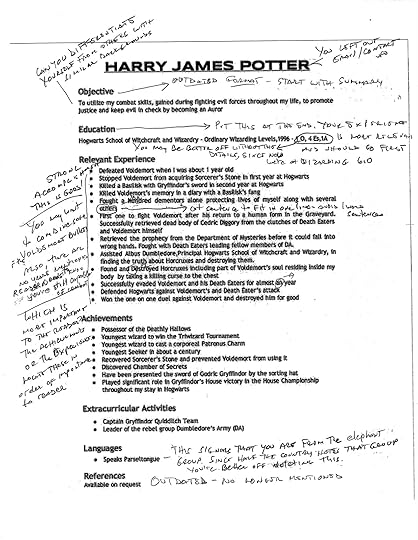 CAN YOU DIFFERENTIATE
YOURSELF FROM OTHERS WITH
SIMILAR BACKGROUNDS
YOU LEFT OUT
EMAIL/CONTACT
HARRY JAMES POTTER
OUTDATED FORMAT - START WITH SUMMARY
Objective
To utilize my combat skills, gained during fighting evil forces throughout my life, to promote
justice and keep evil in check by becoming an Auror
PUT THIS AT THE END. YOUR EXPERIENCE
Education
IS MORE RELEVANT
AND SHOULD GO FIRST
Hogwarts School of Witchcraft and Wizardry - Ordinary Wizarding Levels, 1996 - 1 O, 4 Es, 1A
YOU MAY BE BETTER OFF WITHOUT THE
DETAILS, SINCE
LOTS OF WIZARDING
Relevant Experience
STRONG
THIS IS GOOD
Defeated Voldemort when I was about 1 year old
Stopped Voldemort from acquiring Sorcerer's Stone in first year at Hogwarts
Killed a Basilisk with Gryffindor's sword in second year at Hogwarts
Killed Voldemort's memory in a diary with a Basilisk's fang
Fought a hundred dementors alone protecting lives of myself along with several
others
First one to fight Voldemort after his return to a human form in the Graveyard.
Successfully retrieved dead body of Cedric Diggory from the clutches of Death Eaters
and Voldemort himself
Retrieved the prophecy from the Department of Mysteries before it could fall into
wrong hands. Fought with Death Eaters leading fellow members of DA.
Assisted Albus Dumbledore, Principal Hogwarts School of Witchcraft and Wizardry, in
finding the truth about Horcruxes and destroying them.
Found and destroyed Horcruxes including part of Voldemort's soul residing inside my
body by taking a killing curse to the chest
Successfully evaded Voldemort and his Death Eaters for almost an year
Defended Hogwarts against Voldemort's and Death Eater's attack
Won the one on one duel against Voldemort and destroyed him for good
YOU MAY WANT
VOLDEMORT BULLETS
ALSO THERE ARE
WHICH IS
MORE IMPORTANT
TO THE READER
THE ACHIEVEMENTS
OR THE EXPERIENCE
order of importance
to reader
Achievements
Possessor of the Deathly Hallows
Youngest wizard to win the Triwizard Tournament
Youngest wizard to cast a corporeal Patronus Charm
Youngest Seeker in about a century
Recovered Sorcerer's Stone and prevented Voldemort from using it
Discovered Chamber of Secrets
Have been presented the sword of Godric Gryffindor by the sorting hat
Played significant role in Gryffindor's House victory in the House Championship
throughout my stay in Hogwarts
Extracurricular Activities
Captain Gryffindor Quidditch Team
Leader of the rebel group Dumbledore's Army (DA)
Languages
Speaks Parseltongue
THIS SIGNALS THAT YOU ARE FROM THE elephant
GROUP. SINCE HALF THE COUNTRY HATES THAT GROUP
YOU'RE BETTER OFF DELETING THIS.
References
Available on request
OUTDATED - NO LONGER MENTIONED